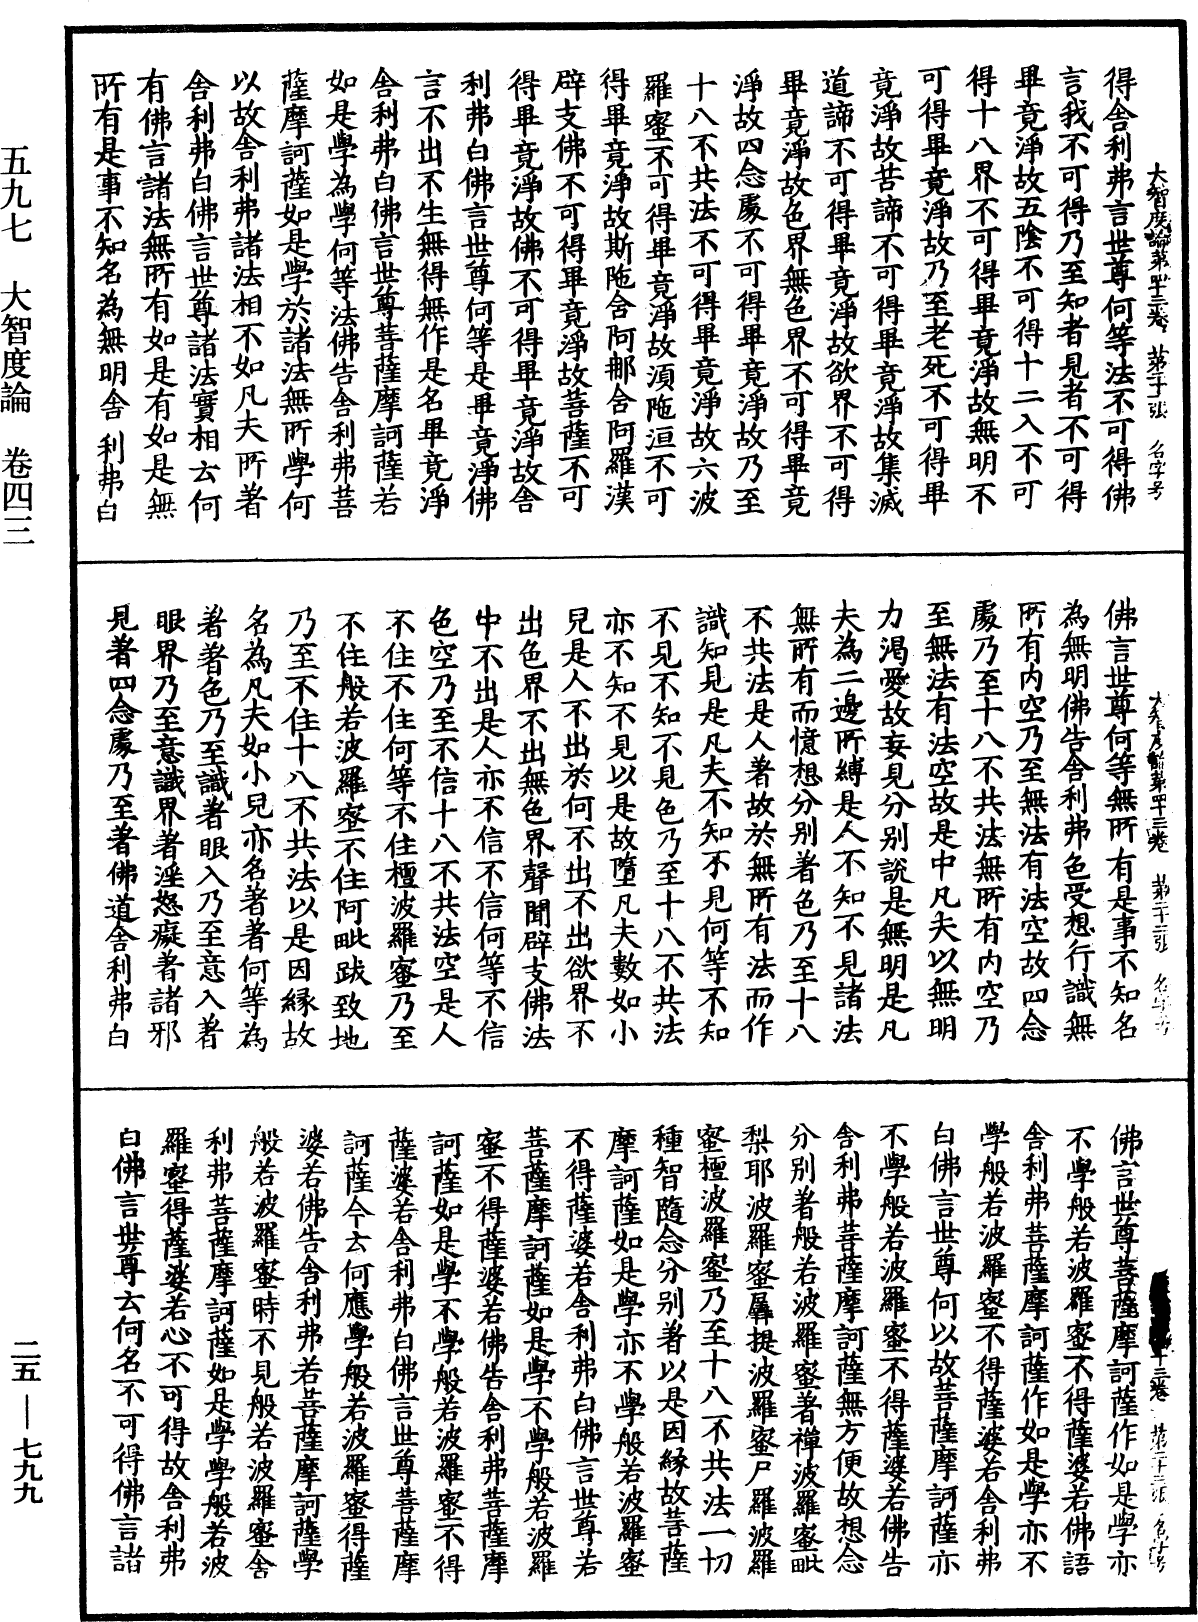 得舍利弗言世尊何等法不可得佛
言我不可得乃至知者見者不可得
畢竟淨故五陰不可得十二入不可
得十八界不可得畢竟淨故無明不
可得畢竟淨故乃至老死不可得畢
竟淨故苦諦不可得畢竟淨故集滅
道諦不可得畢竟淨故欲界不可得
畢竟淨故色界無色界不可得畢竟
淨故四念處不可得畢竟淨故乃至
十八不共法不可得畢竟淨故六波
羅蜜不可得畢竟淨故須陁洹不可
得畢竟淨故斯陁含阿那含阿羅漢
辟支佛不可得畢竟淨故菩薩不可
得畢竟淨故佛不可得畢竟淨故舍
利弗白佛言世尊何等是畢竟淨佛
言不出不生無得無作是名畢竟淨
舍利弗白佛言世尊菩薩摩訶薩若
如是學為學何等法佛告舍利弗菩
薩摩訶薩如是學於諸法無所學何
以故舍利弗諸法相不如凡夫所著
舍利弗白佛言世尊諸法實相云何
有佛言諸法無所有如是有如是無
所有是事不知名為無明舍利弗白
大智度論第四十三卷 第二十一張 名字号
佛言世尊何等無所有是事不知名
為無明佛告舍利弗色受想行識無
所有內空乃至無法有法空故四念
處乃至十八不共法無所有內空乃
至無法有法空故是中凡夫以無明
力渴愛故妄見分別說是無明是凡
夫為二邊所縛是人不知不見諸法
無所有而憶想分別著色乃至十八
不共法是人著故於無所有法而作
識知見是凡夫不知不見何等不知
不見不知不見色乃至十八不共法
亦不知不見以是故墮凡夫數如小
兒是人不出於何不出不出欲界不
出色界不出無色界聲聞辟支佛法
中不出是人亦不信不信何等不信
色空乃至不信十八不共法空是人
不住不住何等不住檀波羅蜜乃至
不住般若波羅蜜不住阿毗跋致地
乃至不住十八不共法以是因緣故
名為凡夫如小兒亦名著者何等為
著著色乃至識著眼入乃至意入著
眼界乃至意識界著淫怒癡著諸邪
見著四念處乃至著佛道舍利弗白
第二十二張
佛言世尊菩薩摩訶薩作如是學亦
不學般若波羅蜜不得薩婆若佛語
舍利弗菩薩摩訶薩作如是學亦不
學般若波羅蜜不得薩婆若舍利弗
白佛言世尊何以故菩薩摩訶薩亦
不學般若波羅蜜不得薩婆若佛告
舍利弗菩薩摩訶薩無方便故想念
分別著般若波羅蜜著禪波羅蜜毗
梨耶波羅蜜羼提波羅蜜尸羅波羅
蜜檀波羅蜜乃至十八不共法一切
種智隨念分別著以是因緣故菩薩
摩訶薩如是學亦不學般若波羅蜜
不得薩婆若舍利弗白佛言世尊若
菩薩摩訶薩如是學不學般若波羅
蜜不得薩婆若佛告舍利弗菩薩摩
訶薩如是學不學般若波羅蜜不得
薩婆若舍利弗白佛言世尊菩薩摩
訶薩今云何應學般若波羅蜜得薩
婆若佛告舍利弗若菩薩摩訶薩學
般若波羅蜜時不見般若波羅蜜舍
利弗菩薩摩訶薩如是學學般若波
羅蜜得薩婆若心不可得故舍利弗
白佛言世尊云何名不可得佛言諸
五九七 大智度論 卷四三
二五—七九九